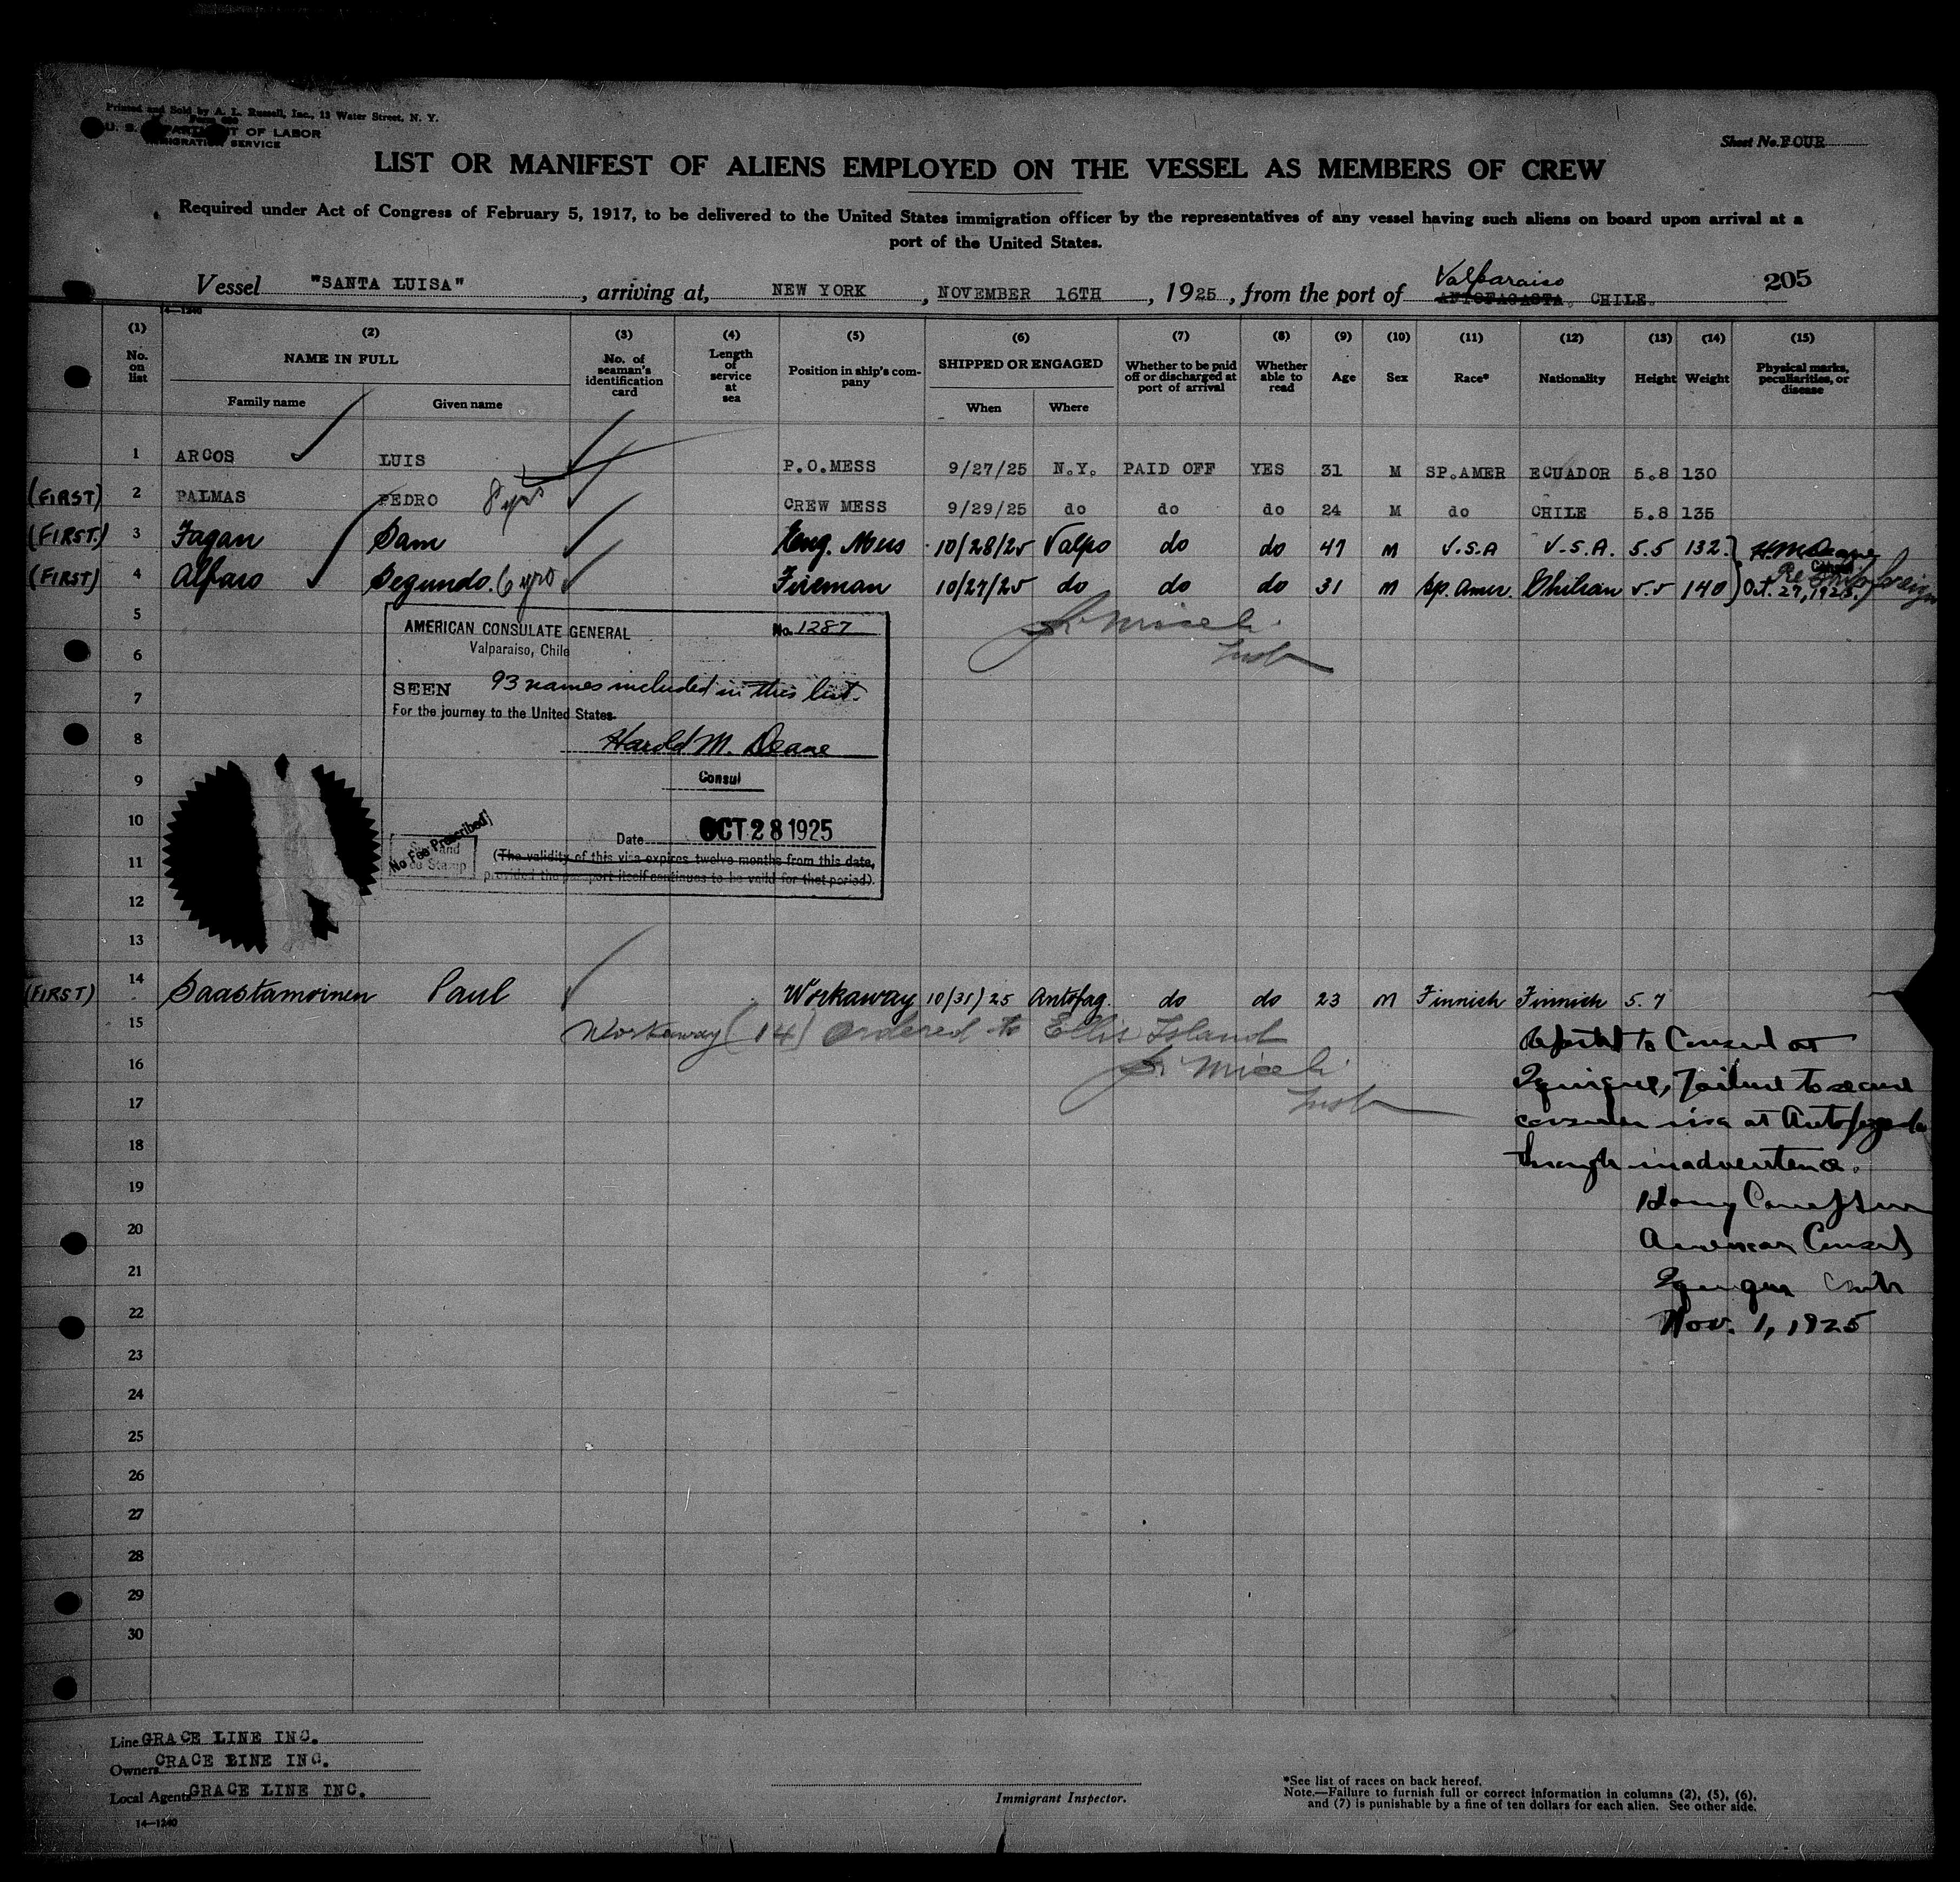 Printed and Sold by A. L. Russell, Inc., 13 Water Street, N. Y.
U. S. DEPARTMENT OF LABOR
IMMIGRATION SERVICE
Sheet No. FOUR
LIST OR MANIFEST OF ALIENS EMPLOYED ON THE VESSEL AS MEMBERS OF CREW
Required under Act of Congress of February 5, 1917, to be delivered to the United States immigration officer by the representatives of any vessel having such aliens on board upon arrival at a
port of the United States.
Valparaiso
Vessel "SANTA LUISA", arriving at, NEW YORK, NOVEMBER 16TH, 1925, from the port of ANTOFAGASTA. CHILE. 205
14—1240
(1) (2) (3) (4) (5) (6) (7) (8) (9) (10) (11) (12) (13) (14) (15)
No. on list NAME IN FULL No. of seaman's identification card Length of service at sea Position in ship's company SHIPPED OR ENGAGED Whether to be paid off or discharged at port of arrival Whether able to read Age Sex Race* Nationality Height Weight Physical marks, peculiarities, or disease
Family name Given name When Where
1 ARCOS LUIS P.O.MESS 9/27/25 N.Y. PAID OFF YES 31 M SP.AMER ECUADOR 5.8 130
(FIRST) 2 PALMAS PEDRO 8 yrs CREW MESS 9/29/25 do do do 24 M do CHILE 5.8 135
(FIRST.) 3 Fagan Sam Eng. Mess 10/28/25 Valpo do do 47 M U.S.A U.S.A. 5.5 132 H.M.Deane
Consul
(FIRST) 4 Alfaro Segundo. 6 yrs Fireman 10/27/25 do do do 31 M Sp. Amer. Chilean 5.5 140 Oct. 29, 1925.
Reship foreign
5
6
7
8
9
10
11
12
13
AMERICAN CONSULATE GENERAL No. 1287
Valparaiso, Chile
SEEN 93 names included in this list.
For the journey to the United States.
Harold M. Deane
Consul
No Fee Prescribed
Date OCT 28 1925
(The validity of this visa expires twelve months from this date,
provided the passport itself continues to be valid for that period).
(FIRST) 14 Saastamoinen Paul Workaway 10/31/25 Antofag. do do 23 M Finnish Finnish 5.7
15 Workaway (14) ordered to Ellis Island
16
17
18
19
20
21
22
23
24
25
26
27
28
29
30
Reported to Consul at
Iquique, Failure to secure
consular visa at Antofagasta
through inadvertence.
American Consul
Iquique Chile
Nov. 1, 1925
Line GRACE LINE INC.
Owners GRACE LINE INC.
Local Agents GRACE LINE INC.
14—1240
Immigrant Inspector.
*See list of races on back hereof.
Note.—Failure to furnish full or correct information in columns (2), (5), (6),
and (7) is punishable by a fine of ten dollars for each alien. See other side.